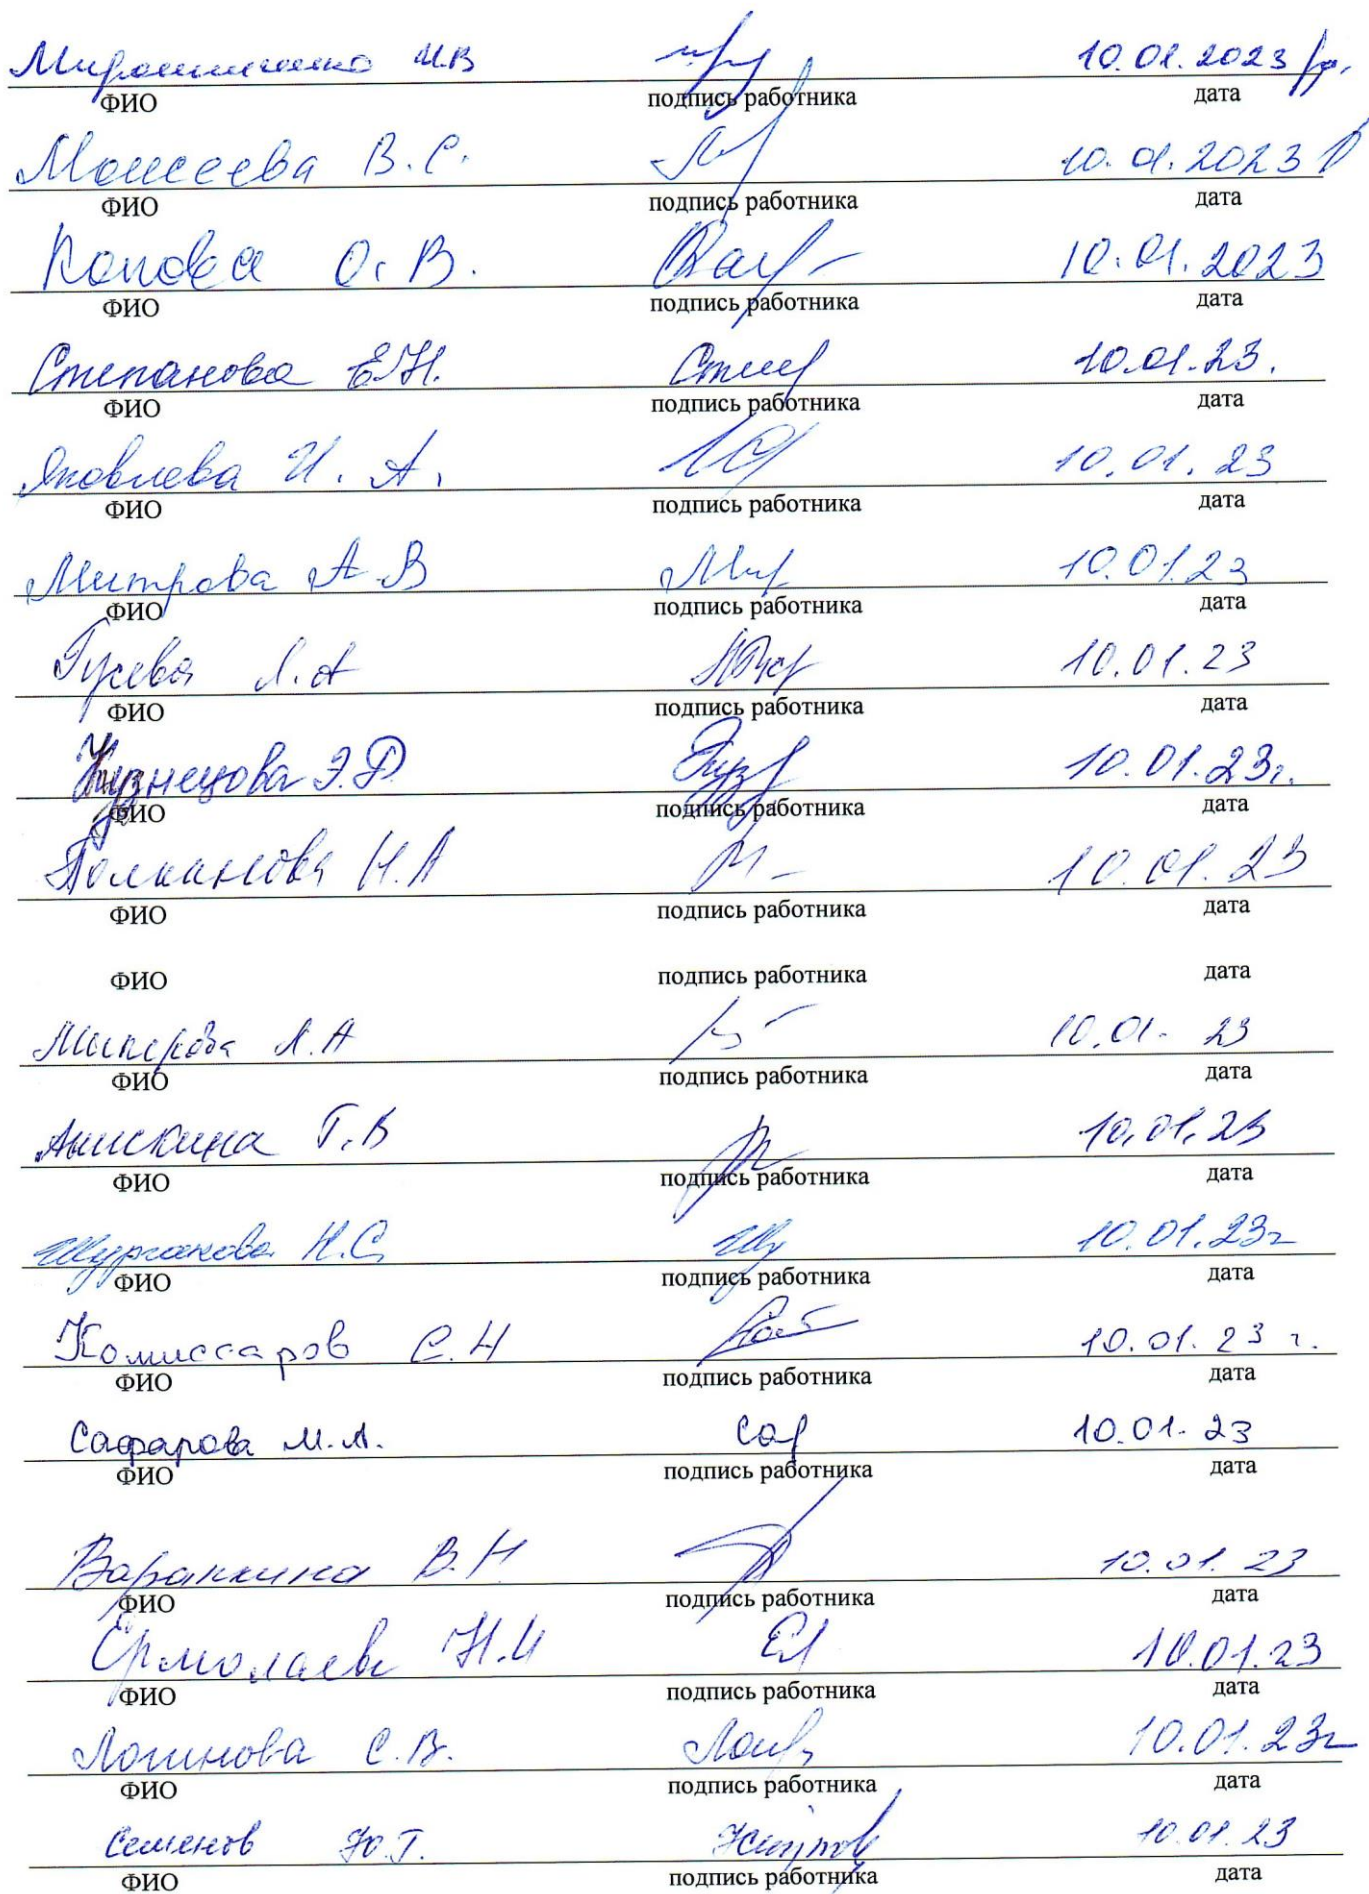 Мирошниченко И.В 10.01.2023
ФИО подпись работника дата
Моисеева В.С. 10.01.2023
ФИО подпись работника дата
Попова О.В. 10.01.2023
ФИО подпись работника дата
Степанова Е.Н. 10.01.23.
ФИО подпись работника дата
Яковлева И.А. 10.01.23
ФИО подпись работника дата
Митрова А.В 10.01.23
ФИО подпись работника дата
Гусева Л.А 10.01.23
ФИО подпись работника дата
Кузнецова Э.Р 10.01.23г.
ФИО подпись работника дата
Полканова Н.А 10.01.23
ФИО подпись работника дата
ФИО подпись работника дата
Л.А 10.01.23
ФИО подпись работника дата
Анискина Т.В 10.01.23
ФИО подпись работника дата
Н.С. 10.01.23г
ФИО подпись работника дата
Комиссаров С.Н 10.01.23 г.
ФИО подпись работника дата
Сафарова М.А. Саф 10.01.23
ФИО подпись работника дата
Варанкина В.Н 10.01.23
ФИО подпись работника дата
Ермолаева Н.И 10.01.23
ФИО подпись работника дата
Логинова С.В. 10.01.23г
ФИО подпись работника дата
Семенов Ю.Г. 10.01.23
ФИО подпись работника дата